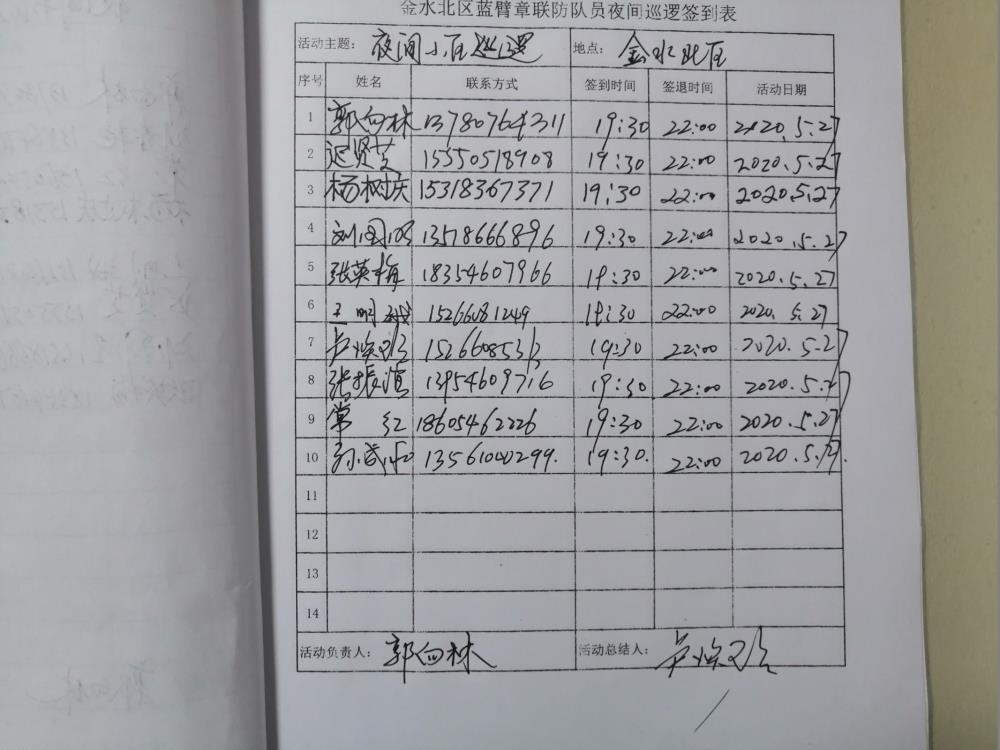 金水北区蓝臂章联防队员夜间巡逻签到表
活动主题： 夜间小区巡逻 地点： 金水北区
序号 姓名 联系方式 签到时间 签退时间 活动日期
1 郭向林 13780764311 19:30 22:00 2020.5.27
2 迟贤芝 15550518908 19:30 22:00 2020.5.27
3 杨树庆 15318367371 19:30 22:00 2020.5.27
4 刘国 13518666896 19:30 22:00 2020.5.27
5 张英梅 18354607966 19:30 22:00 2020.5.27
6 王明 15266081249 19:30 22:00 2020.5.27
7 19:30 22:00 2020.5.27
8 张振滨 13954609716 19:30 22:00 2020.5.27
9 常红 18605462226 19:30 22:00 2020.5.27
10 孙 13561000299. 19:30. 22:00 2020.5.27.
11
12
13
14
活动负责人： 郭向林 活动总结人：